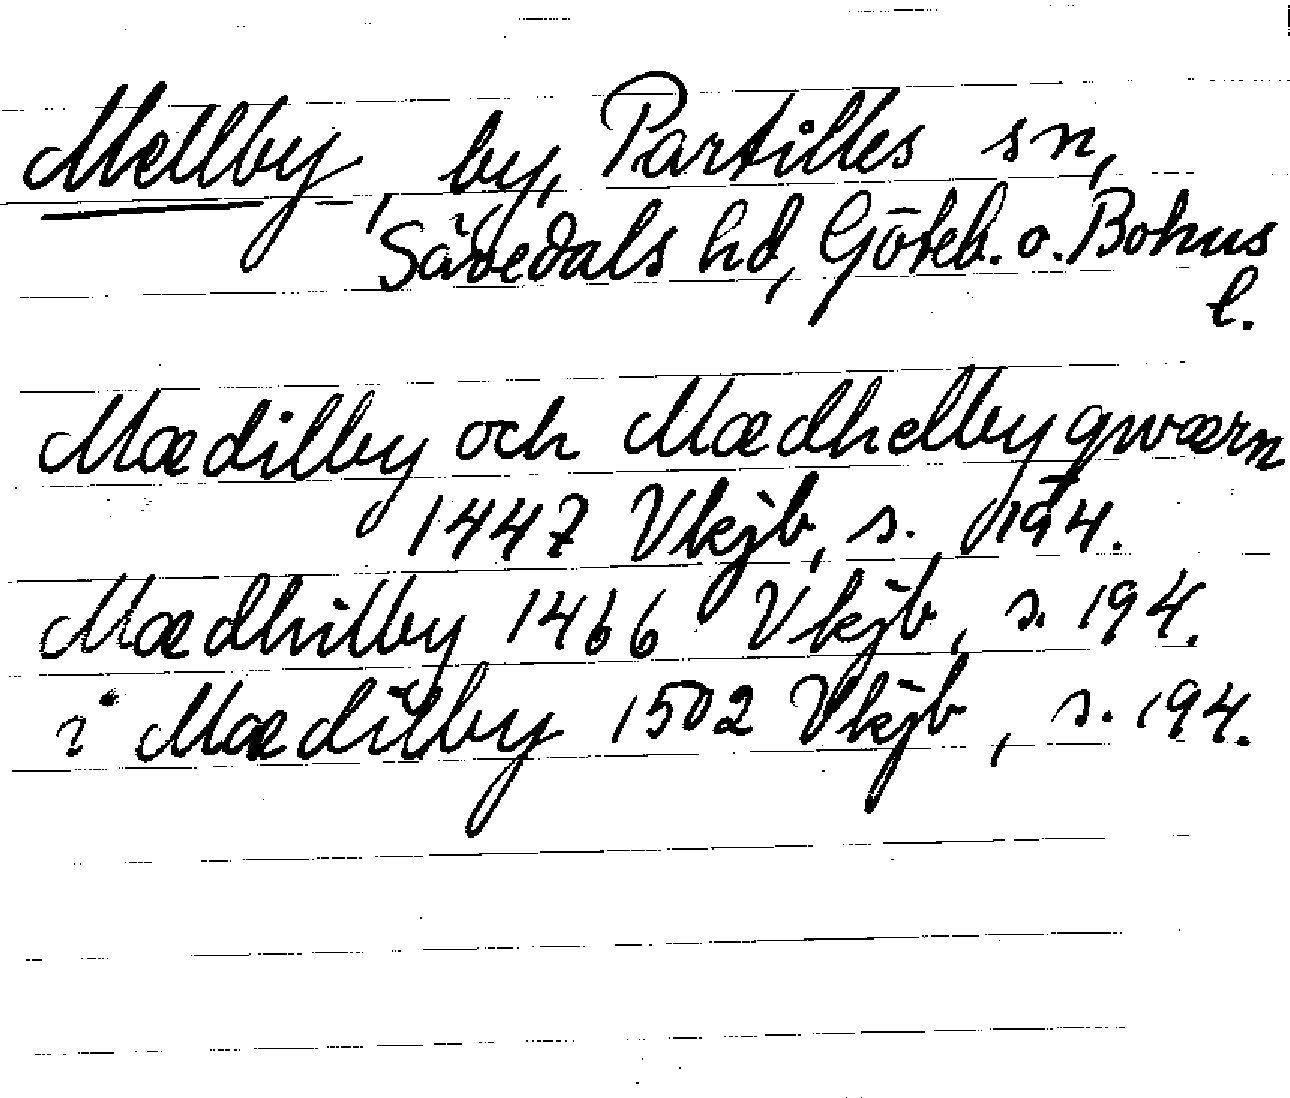 Mellby, by, Partilles sn,
Sävedals hd, Göteb. o. Bohus
l.
Mædilby och Mædhelby qwærn
1447 Vkjb, s. 194.
Mædhilby 1466 Vkjb, s. 194.
i Mædilby 1502 Vkjb, s. 194.